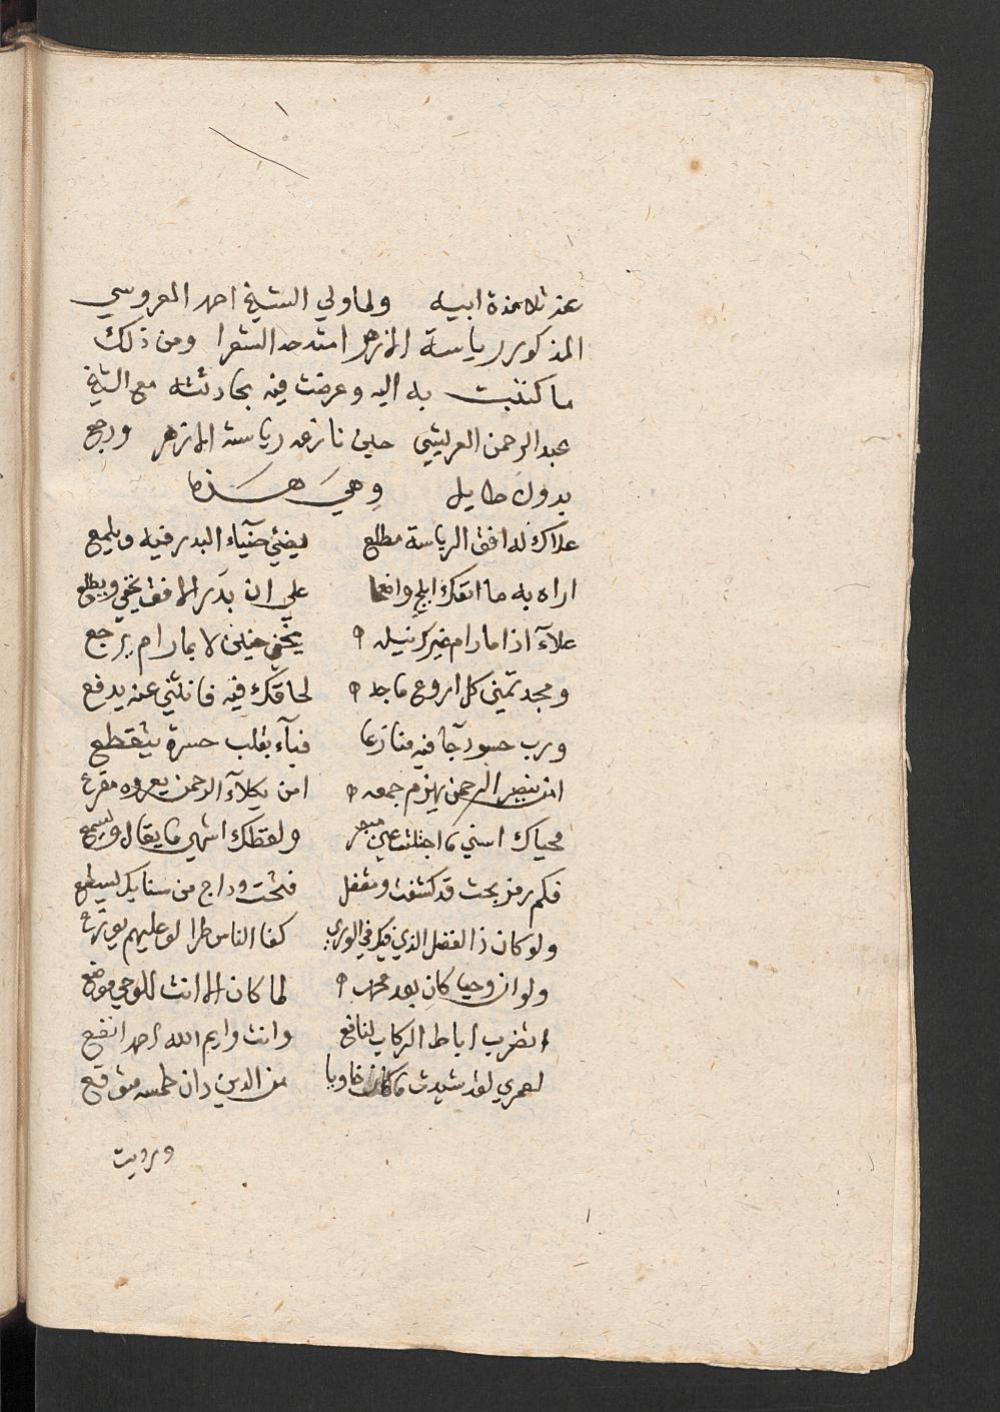 عند تلامذة ابيه ولما ولي الشيخ احمد العروسي
المذكور رياسة الازهر امتدحه الشعرا ومن ذلك
ما كتبت به اليه وعرضت فيه بحادثته مع الشيخ
عبد الرحمن العريشي حين نازعه رياسة الازهر ورجع
بدون طايل وهي هذه
علاك له افق الرياسة مطلع يضئي ضيآء البدر فيه ويلمع
اراه به ما انفك ابلج واضحا علي ان بدر الافق يخفي ويطلع
علآء اذا ما رام غيرك نيله بخفي حنين لا بما رام يرجع
ومجد تمني كل اروع ماجد لحاقك فيه فانثني عنه يدفع
ورب حسود جآ فيه منازعا فبآء بقلب حسرة يتقطع
امن ينصر الرحمن يهزم جمعه امن يكلآء الرحمن يعروه مفزع
محياك اسني ما اجتلت عين مبصر ولفظك اشهي ما يقال ويسمع
فكم رمز بحث قد كشفت ومقفل فتحت وداج من سنا بك يسطع
ولو كان ذا الفضل الذي فيك في الوري كفا الناس طرا لو عليهم يوزع
ولو ان وحيا كان بعد محمد لما كان الا انت للوحي موضع
اتضرب اباط الركاب لنافع وانت وايم الله احمد انفع
لعمري لقد شيدت ما كان خاويا من الدين دان طمسه متوقع
ورديت